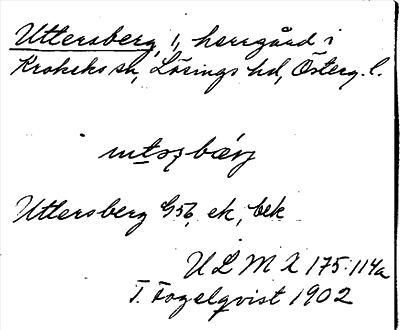 Uttersberg, 1, herrgård i
Krokeks sn, Lösings hd, Österg. l.
Uttersberg G56, ek, bek
ULM X 175:114a
T. Fogelqvist 1902